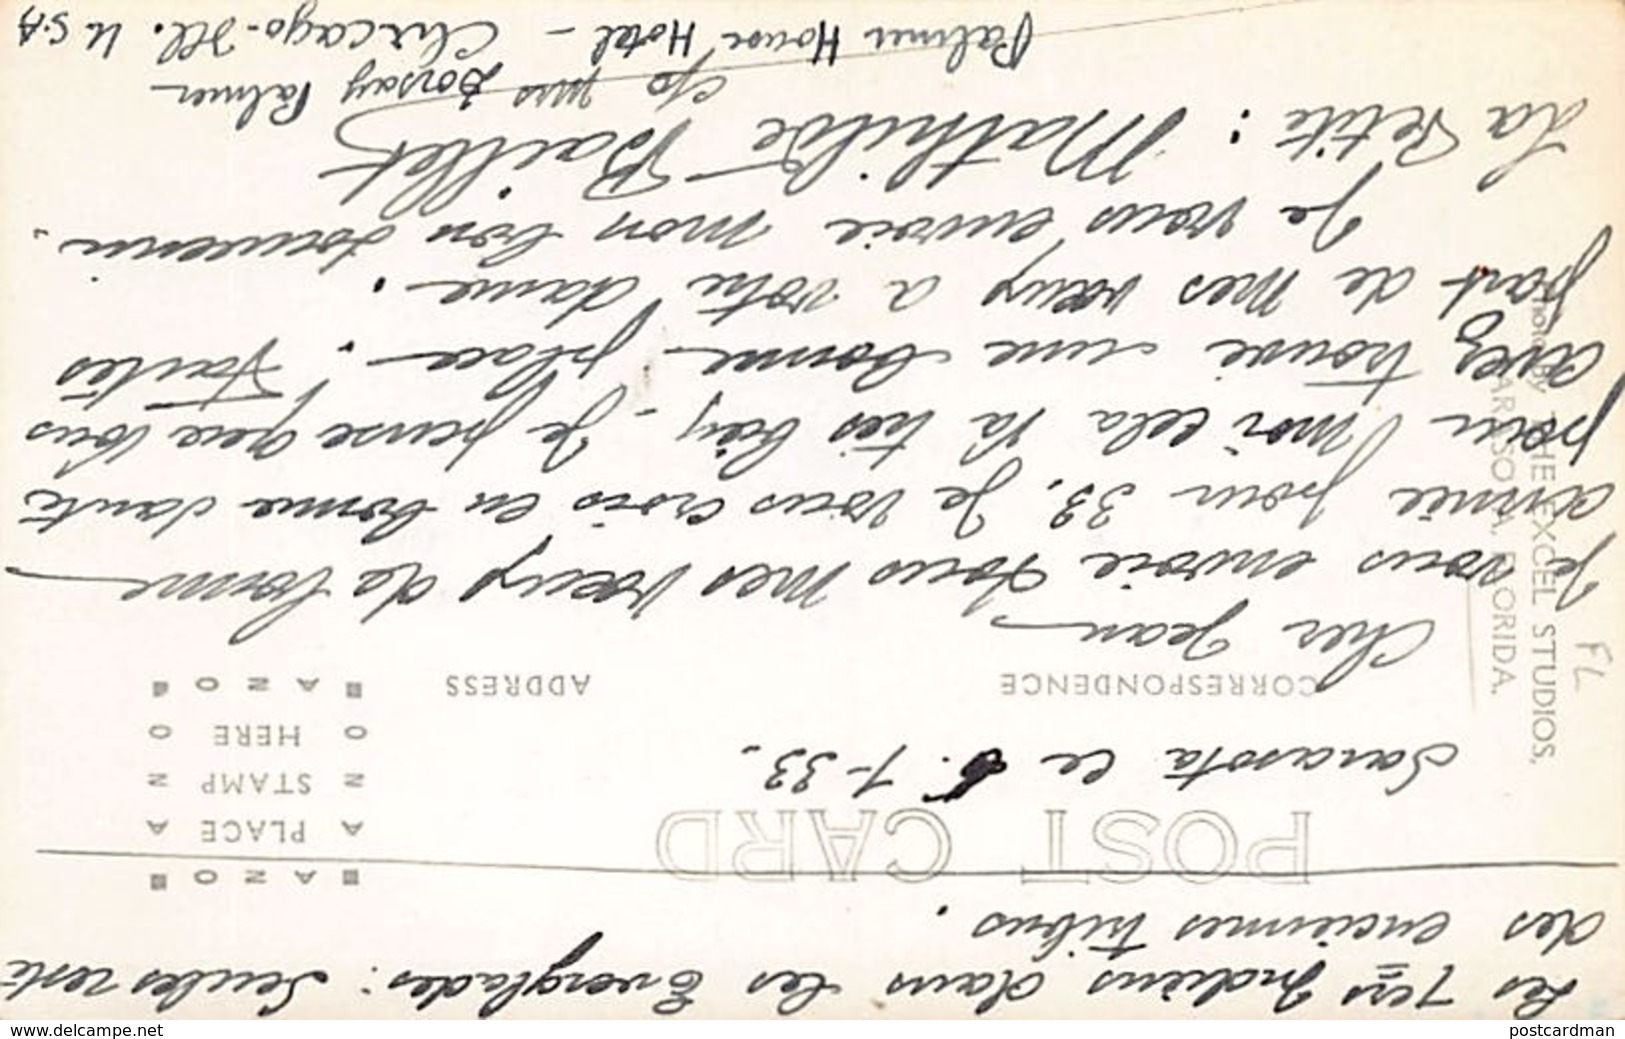 Les 1ers Indiens dans les Everglades : Seules reste
des enciennes tribus.
POST CARD
BANOB
PLACE
STAMP
HERE
BANOB
Sarasota ce 1-33.
CORRESPONDENCE
ADDRESS
Cher Jean
Je vous envoie tous mes vœux de bonne
année pour 33. Je vous crois en bonne santé
pour moi cela va très bien. Je pense que vous
avez trouvé une bonne place. Faites
part de mes vœux a votre dame.
Je vous envoie mon bon souvenir.
La Petite : Mathilde Baillet
c/o Mrs Dorsay Palmer
Palmer House Hotel - Chicago-Ill. U.S.A
Photo By THE EXCEL STUDIOS,
SARASOTA, FLORIDA.
FL
www.delcampe.net
postcardman